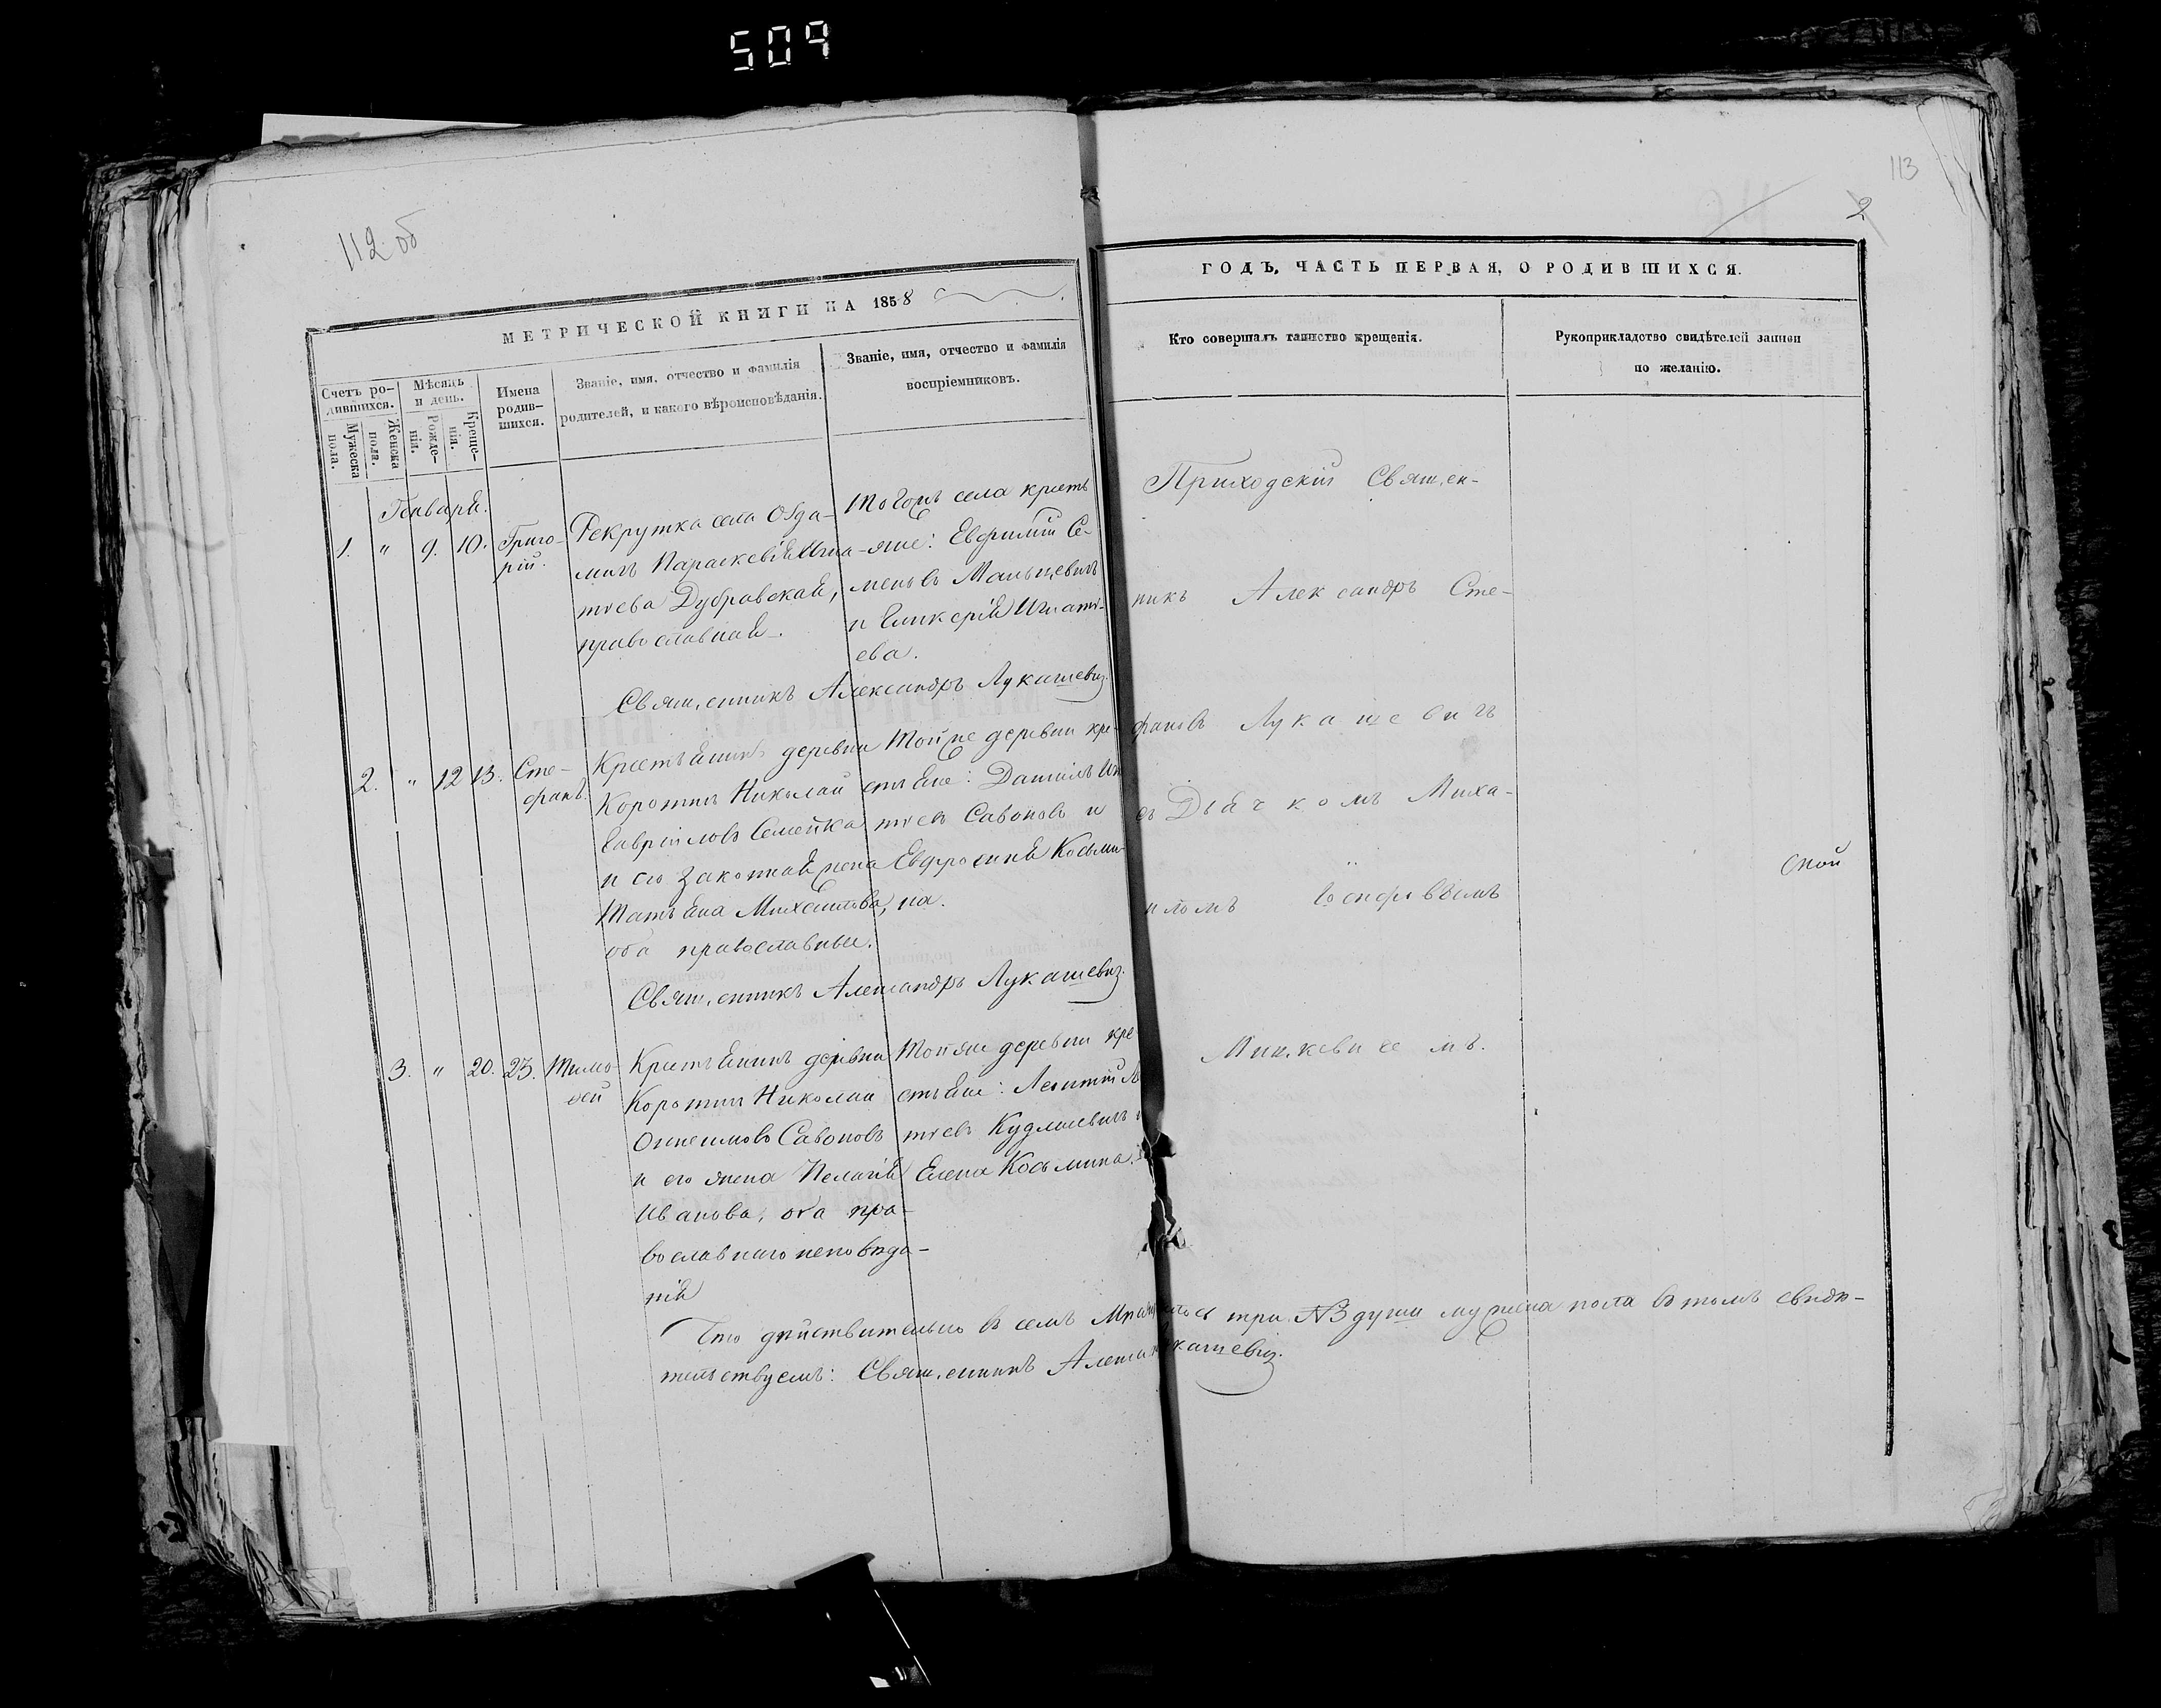 509
112 об
113
2
МЕТРИЧЕСКОЙ КНИГИ НА 1858
ГОДЪ, ЧАСТЬ ПЕРВАЯ, О РОДИВШИХСЯ.
Счетъ ро-
дившихся.
Мужеска
пола.
Женска
пола.
Мѣсяцъ
и день.
Рожде-
нія.
Креще-
нія.
Имена
родив-
шихся.
Званіе, имя, отчество и фамилія
родителей, и какого вѣроисповѣданія.
Званіе, имя, отчество и фамилія
воспріемниковъ.
Кто совершалъ таинство крещенія.
Рукоприкладство свидѣтелей записи
по желанію.
Генваря.
1. " 9. 10. Григо-
рій.
Рекрутка села Озда-
мичъ Параскевія Игна-
тіева Дубровская,
православная.
Тогожъ села кресть-
яне: Евфимій Се-
меновъ Мальцевичъ
и Гликерія Игнаті-
ева.
Священникъ Александръ Лукашевич
2. " 12 13. Сте-
фанъ.
Крестьянинъ деревни
Коротичъ Николай
Гавріиловъ Семейка
и его законная жена
Татьяна Михеитова,
оба православные.
Тойже деревни кре-
стьяне: Даніилъ
тіевъ Савоновъ и
Евфросинія Косьми-
на.
Священникъ Александръ Лукашевич.
3. " 20. 23. Тимо-
ѳей
Крестьянинъ деревни
Коротичъ Николай
Онисимовъ Савоновъ
и его жена Пелагія
Иванова, оба пра-
вославнаго исповѣда-
нія
Тойже деревни кре-
стьяне: Леонтій
тіевъ Кудлашевичъ
Елена Косьмина.
Приходскій Священ-
никъ Александръ Сте-
фановъ Лукашевичъ
съ Дьячкомъ Миха-
иломъ Іосифовымъ
Мицкевичемъ.
Что дѣйствительно въ семъ три №3 души мужеска пола въ томъ свидѣ-
тельствуемъ: Священникъ